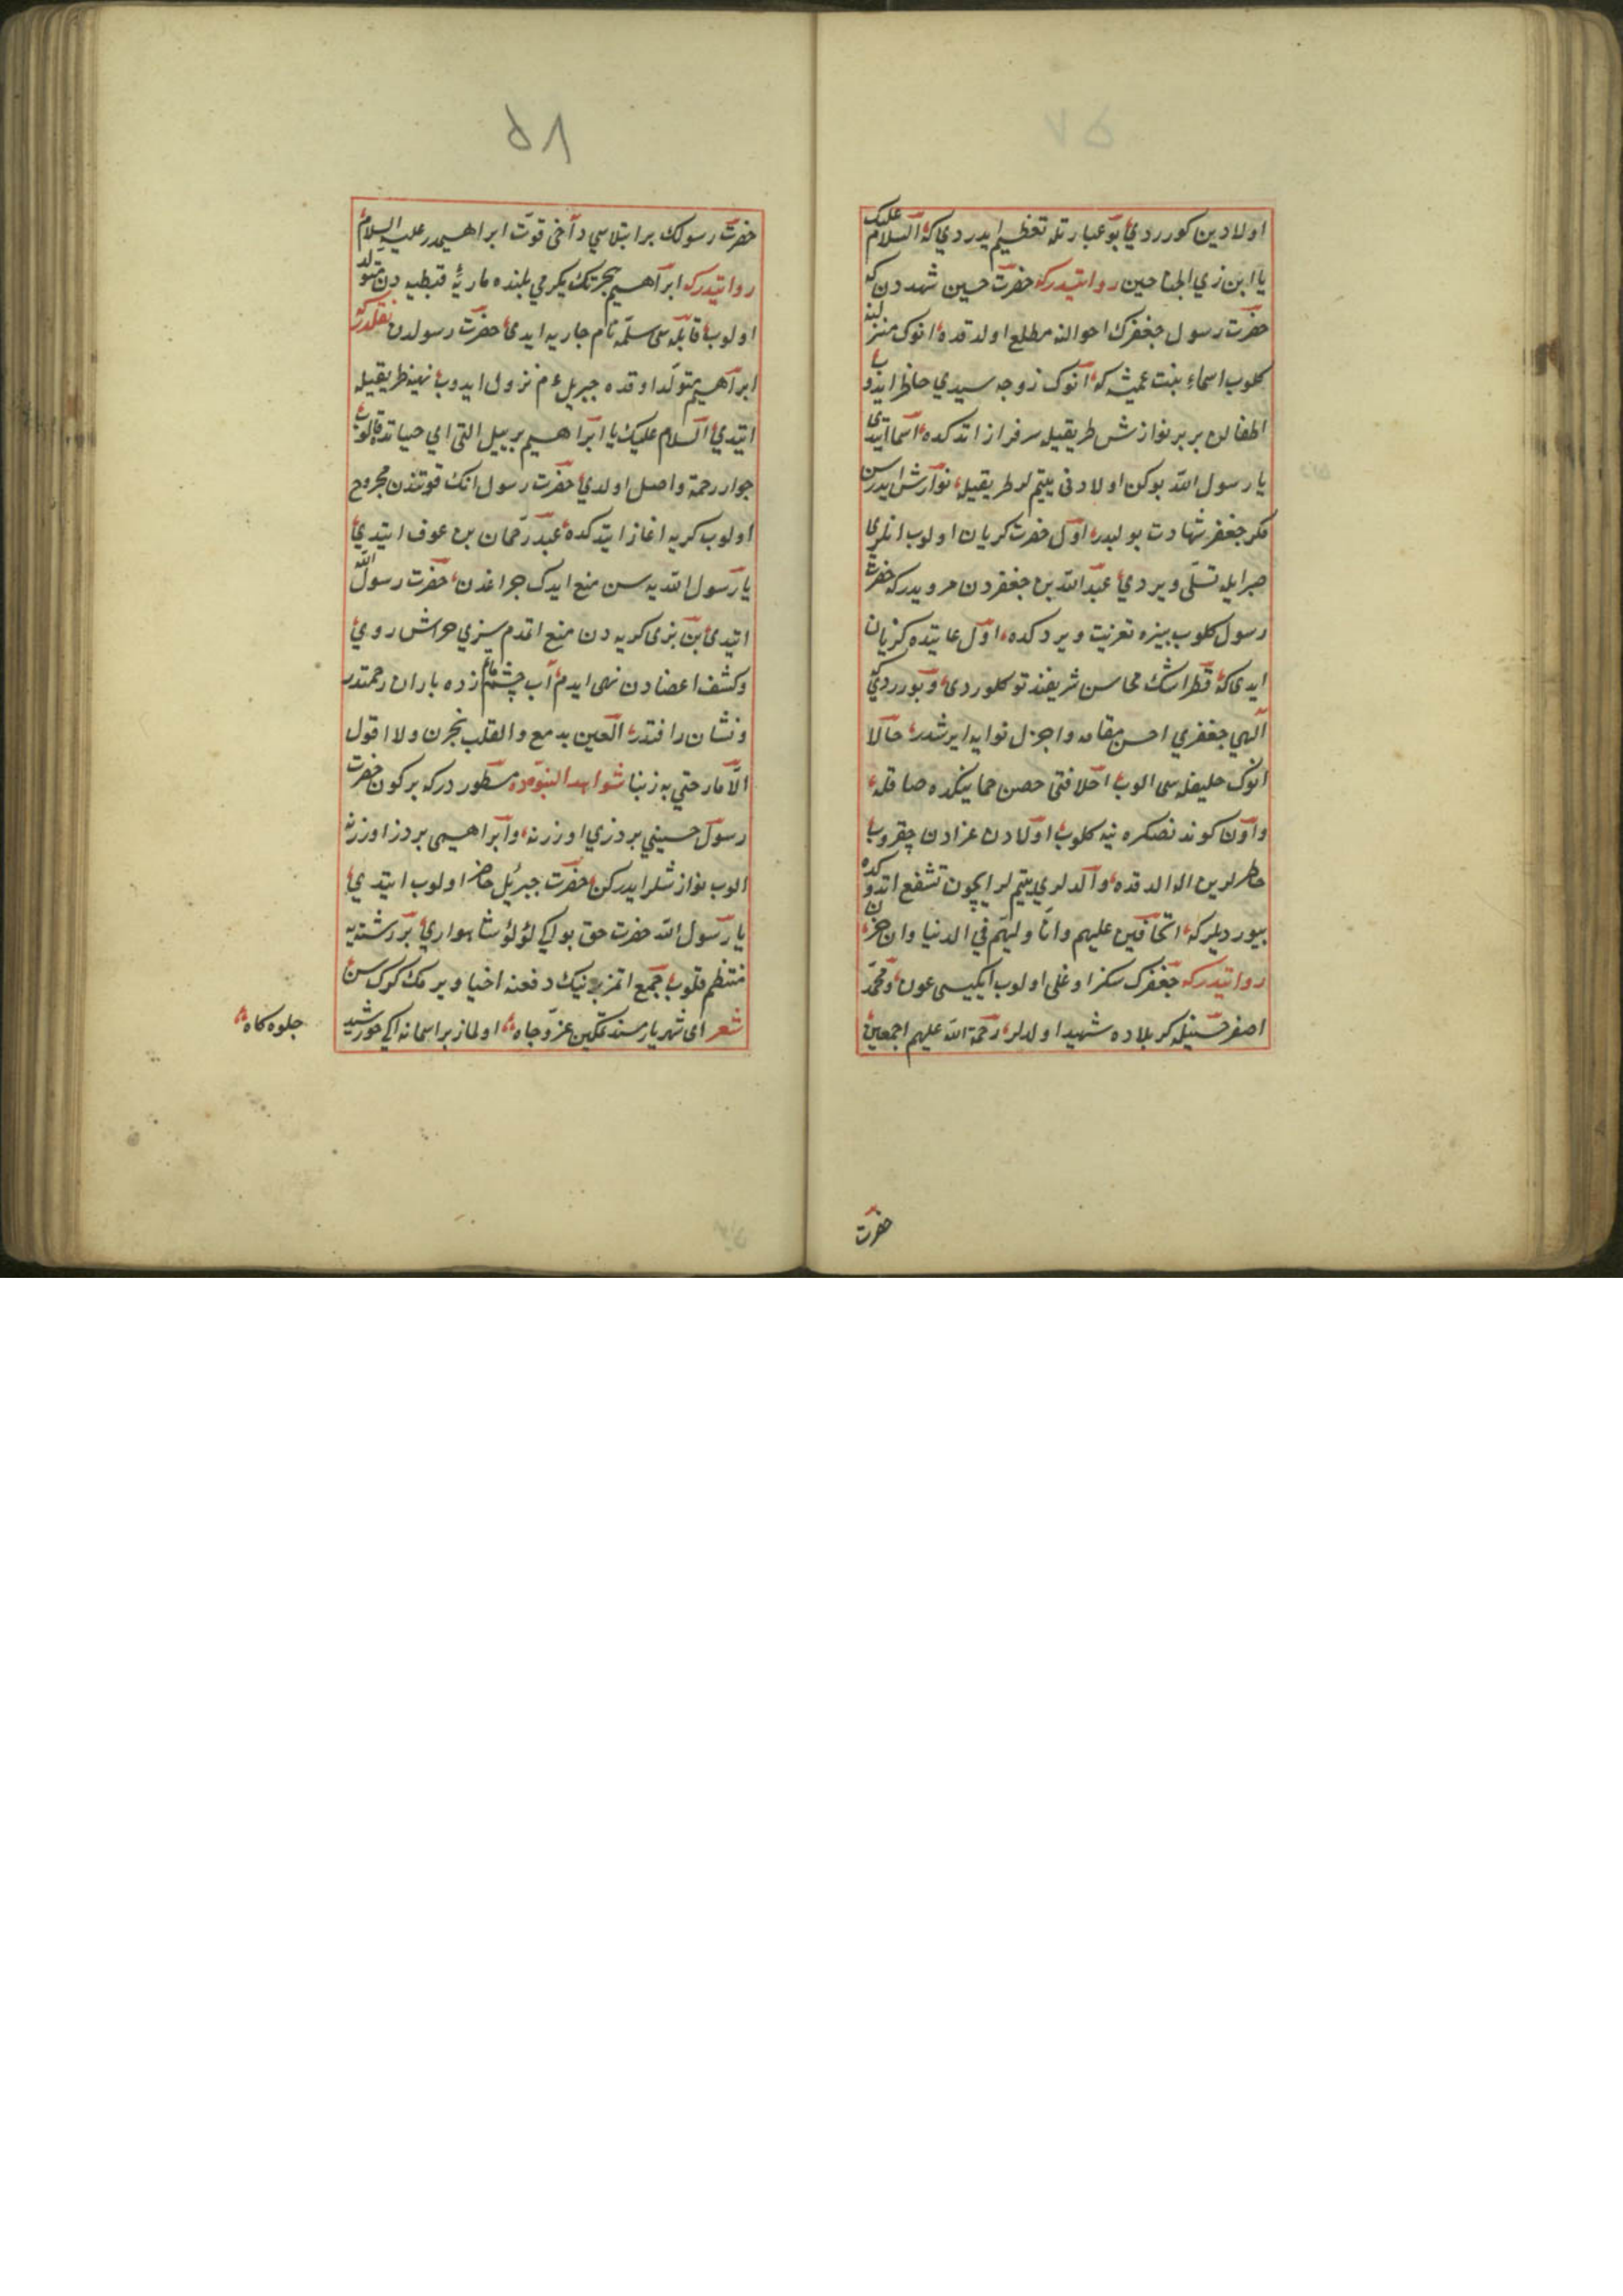 اولادین کورردی بو عبارتله تعظیم ایدردی که السلام علیک
یا ابن زی الجناحین روایتدرکه حضرت حسین شهددن که
حضرت رسول جعفرک احوالنه مطلع اولدقده انوک منزلینه
کلوب اسماء بنت عمیشه که انوک زوجه سیدی حاظر ایدوب
اطفالن بربر نوازش طریقیله سرفراز اتدکده اسما ایتدی
یا رسول الله بوکن اولادنی یتیم لر طریقیله نوازش ایدرسن
مکر جعفر شهادت بولبدر اول حضرت کریان اولوب انلری
صبرایله تسلی ویردی عبد الله بن جعفردن مرویدرکه حضرت
رسول کلوب بیزه تعزیت ویردکده اول غایتده کریان
ایدی که قطر اشک محاسن شریفندن توکلوردی و بیورردی که
الهی جعفری احسن مقامه واجزل ثوابه ایرشدر حالا
انوک خلیفه سی الوب اخلافنی حصن حماینکده صاقله
واون کوندنصکره ینه کلوب اولادن عزادن چقروب
خاطرلرین اله الدقده والدلری یتیم لر ایچون تشفع اتدوکده
بیوردیلرکه اتخافین علیهم وانا ولیهم فی الدنیا والاخرة
روایتدرکه جعفرک سکز اوغلی اولوب ایکیسی عون و محمد
اصغر حسینله کربلاده شهید اولدلر رحمة الله علیهم اجمعین
حضرت
۵۸
حضرت رسولک بر ابتلاسی داخی فوت ابراهیمدر علیه السلام
روایتدرکه ابراهیم هجرتک یکرمی یلنده ماریۀ قبطیه دن متولد
اولوب قابله سی سلمه نام جاریه ایدی حضرت رسولدن نقلدرکه
ابراهیم متولد اوقده جبریل ءم نزول ایدوب تهینه طریقیله
ایتدی السلام علیک یا ابراهیم بر ییل التی ای حیاتده قالوب
جوار رحمة واصل اولدی حضرت رسول انک فوتندن مجروح
اولوب کریه اغاز ایتدکده عبد رحمان بن عوف ایتدی
یا رسول الله یه سن منع ایدک جراغدن حضرت رسول الله
ایتدی بن بزی کریه دن منع اتمدم سیزی خراش روی
وکشف اعضادن نهی ایدم آب چشم ماتم زده باران رحمتدر
ونشان رافتدر العین یدمع والقلب یحزن ولا اقول
الا مارحتی به زبنا شواهد النبوه ده مسطوردرکه بر کون حضرت
رسول حسینی بر دزی اوزرنه وابراهیمی بر دز اوزرنه
الوب نوازشلر ایدرکن حضرت جبرئیل حاضر اولوب ایتدی
یا رسول الله حضرت حق بو ایکی لؤلؤ شاهواری بر رشتیه
منتظم قلوب جمع اتمز برنیک دفعنه اخیار ویرمک کرک سن
شعر ای شهریار مسند تمکین عز و جاه اولماز بر اسمانه ایکی خورشید
جلوه کاه